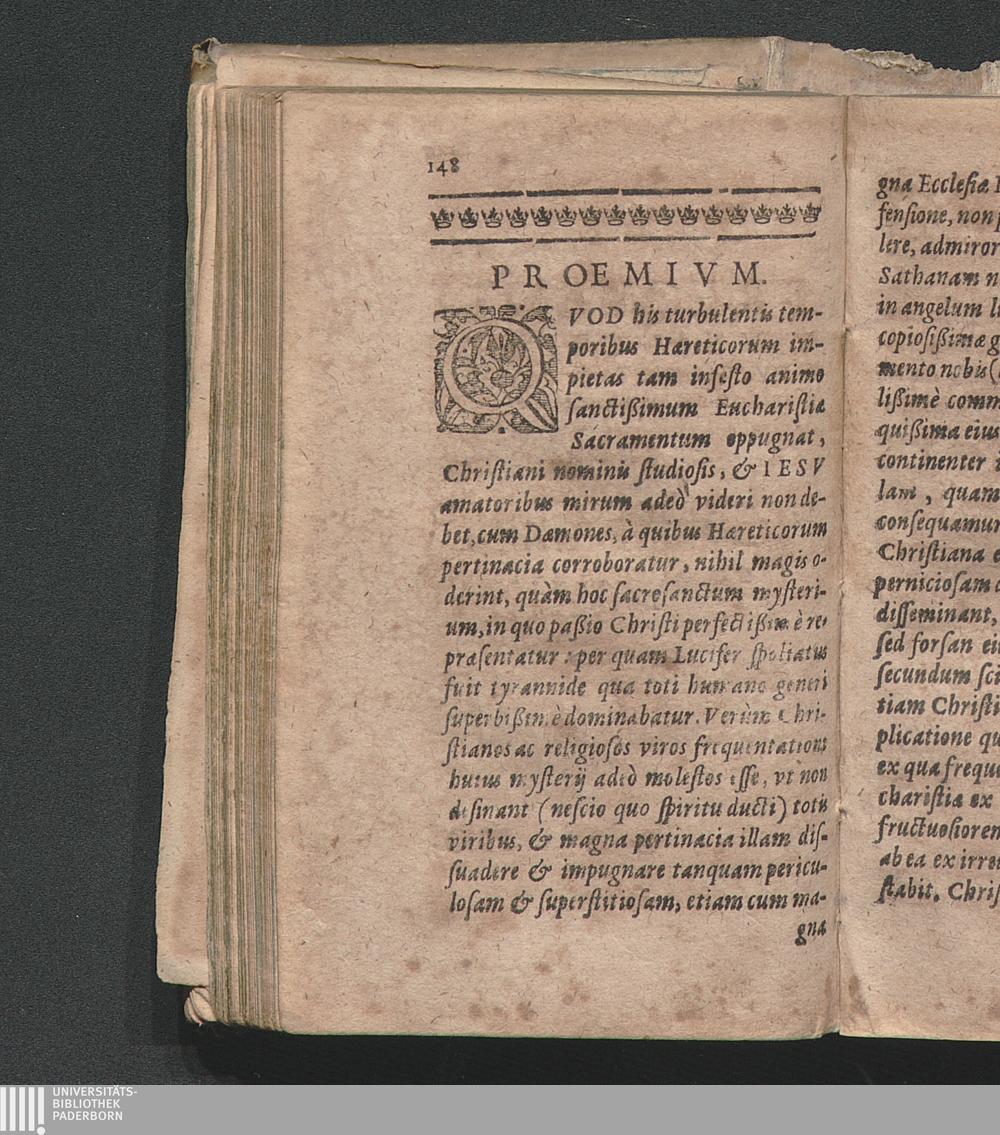 148
PROEMIVM.
QVOD his turbulentis tem-
poribus Hæreticorum im-
pietas tam infesto animo
sanctißimum Eucharistiæ
Sacramentum oppugnat,
Christiani nominis studiosis, & IESV
amatoribus mirum adeò videri non de-
bet, cum Dæmones, à quibus Hæreticorum
pertinacia corroboratur, nihil magis o-
derint, quàm hoc sacrosanctum mysteri-
um, in quo paßio Christi perfectißimè re-
præsentatur: per quam Lucifer spoliatus
fuit tyrannide qua toti humano generi
superbißimè dominabatur. Verùm Chri-
stianos ac religiosos viros frequentationi
huius mysterij adeò molestos esse, vt non
desinant (nescio quo spiritu ducti) totis
viribus, & magna pertinacia illam dis-
suadere & impugnare tanquam pericu-
losam & superstitiosam, etiam cum ma-
gna
gna Ecclesiæ
fensione, non
lere, admiror
Sathanam n
in angelum l
copiosißimæ g
mento nobis (
lißimè comm
quißima eius
continenter
lam, quam
consequamur
Christiana e
perniciosam
disseminant,
sed forsan ei
secundum sci
tiam Christi
plicatione qu
ex qua freque
charistia ex
fructuosiorem
ab ea ex irre
stabit. Chris
UNIVERSITÄTS-
BIBLIOTHEK
PADERBORN